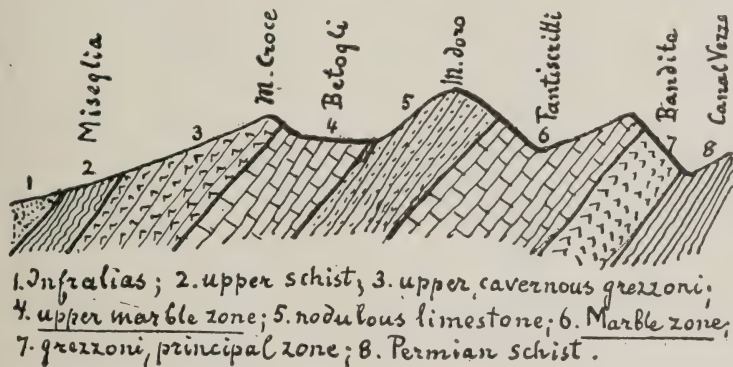 Miseglia
M. Croce
Betogli
M. doro
Fantiscritti
Bandita
Canal Vezza
1
2
3
4
5
6
7
8
1. Infralias; 2. upper schist; 3. upper cavernous grezzoni;
4. upper marble zone; 5. nodulous limestone; 6. Marble zone;
7. grezzoni, principal zone; 8. Permian schist.